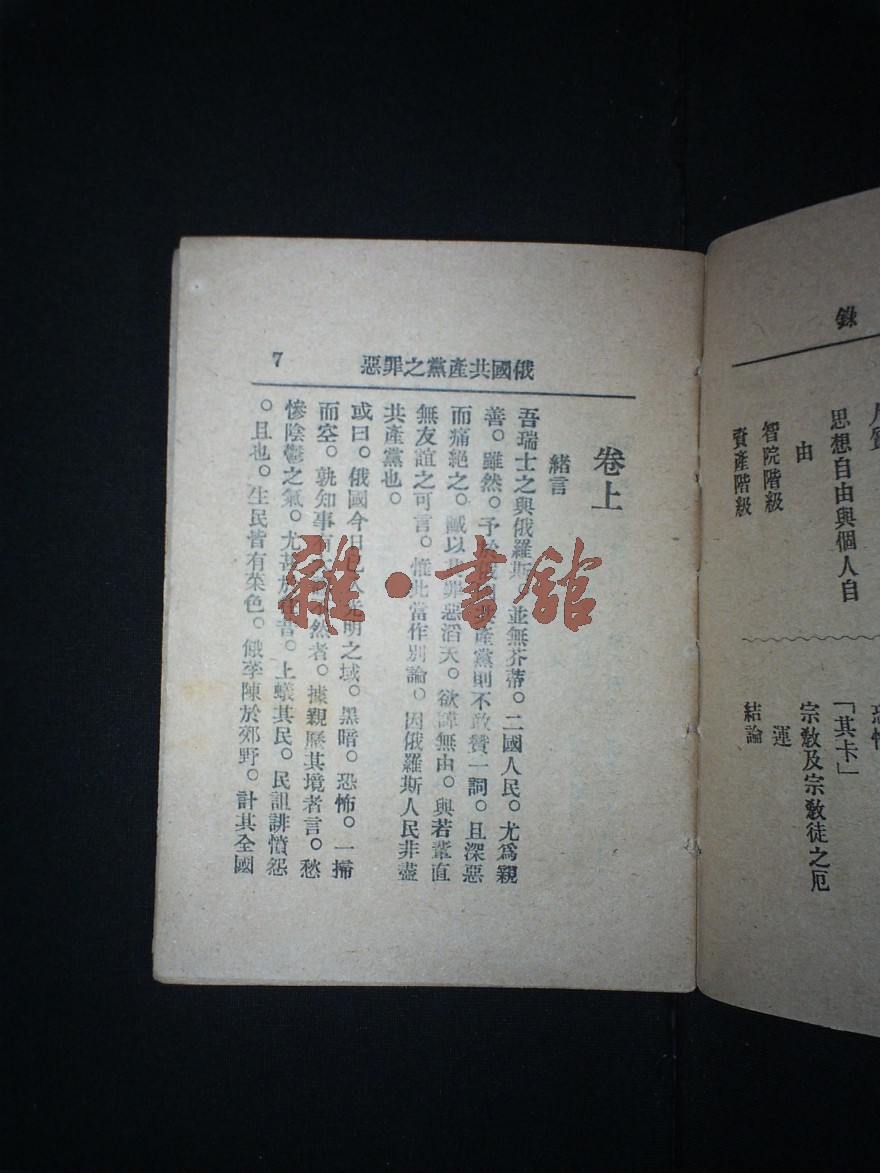 錄
思想自由與個人自
由
智院階級
資產階級
「其卡」
宗教及宗教徒之厄
運
結論
俄國共產黨之罪惡
7
卷上
緒言
吾瑞士之與俄羅斯。並無芥蒂。二國人民。尤爲親
善。雖然。予於俄國共產黨則不敢贊一詞。且深惡
而痛絕之。誠以其罪惡滔天。欲諱無由。與若輩直
無友誼之可言。惟此當作別論。因俄羅斯人民非盡
共產黨也。
或曰。俄國今日已入光明之域。黑暗。恐怖。一掃
而空。孰知事有大謬不然者。據親歷其境者言。愁
慘陰鬱之氣。尤甚於往昔。上蟻其民。民詛誹憤怨
。且也。生民皆有菜色。餓莩陳於郊野。計其全國
雜·書館